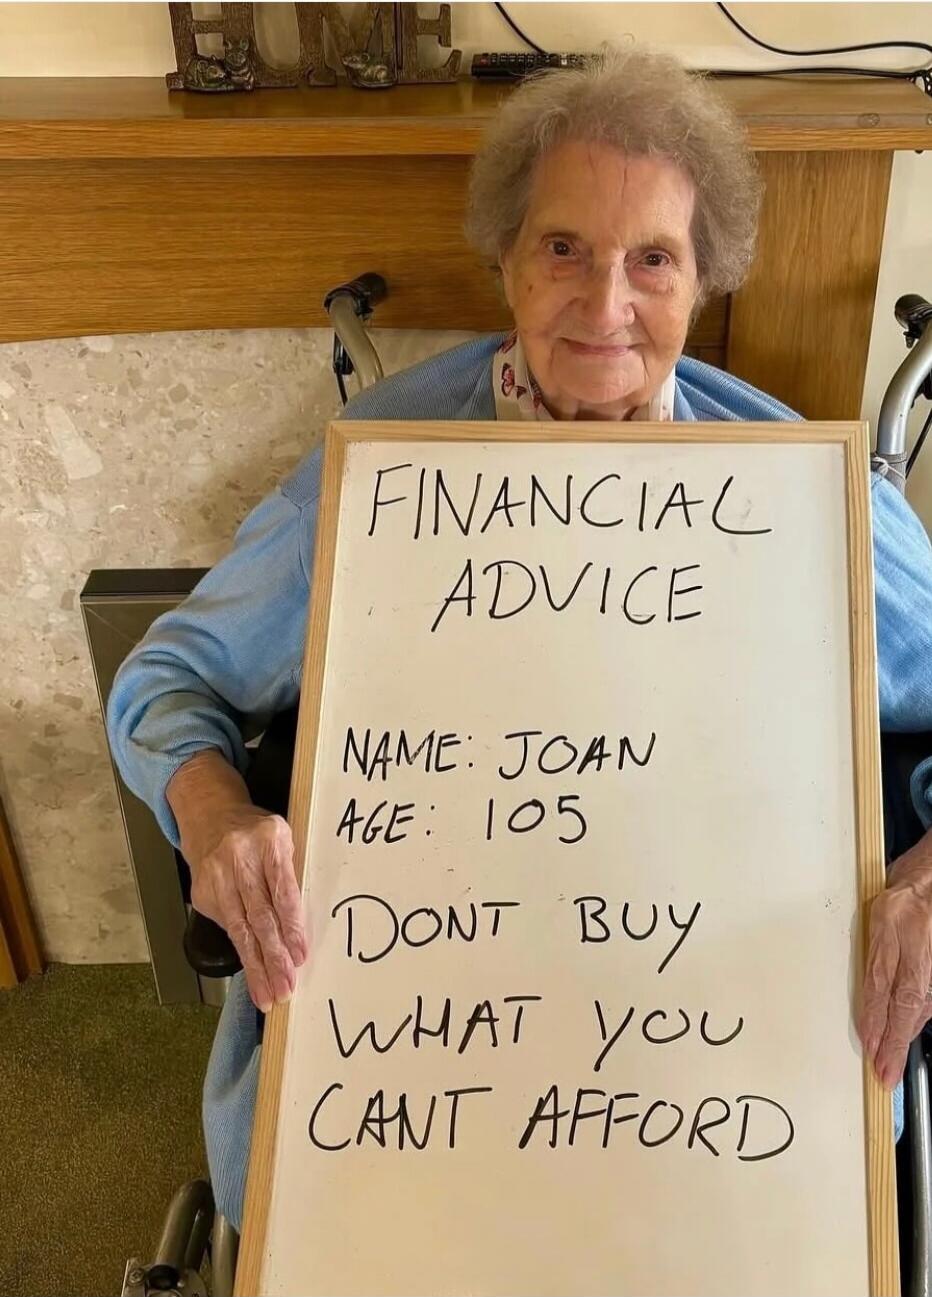 HOME
FINANCIAL
ADVICE
NAME: JOAN
AGE: 105
DONT BUY
WHAT YOU
CANT AFFORD